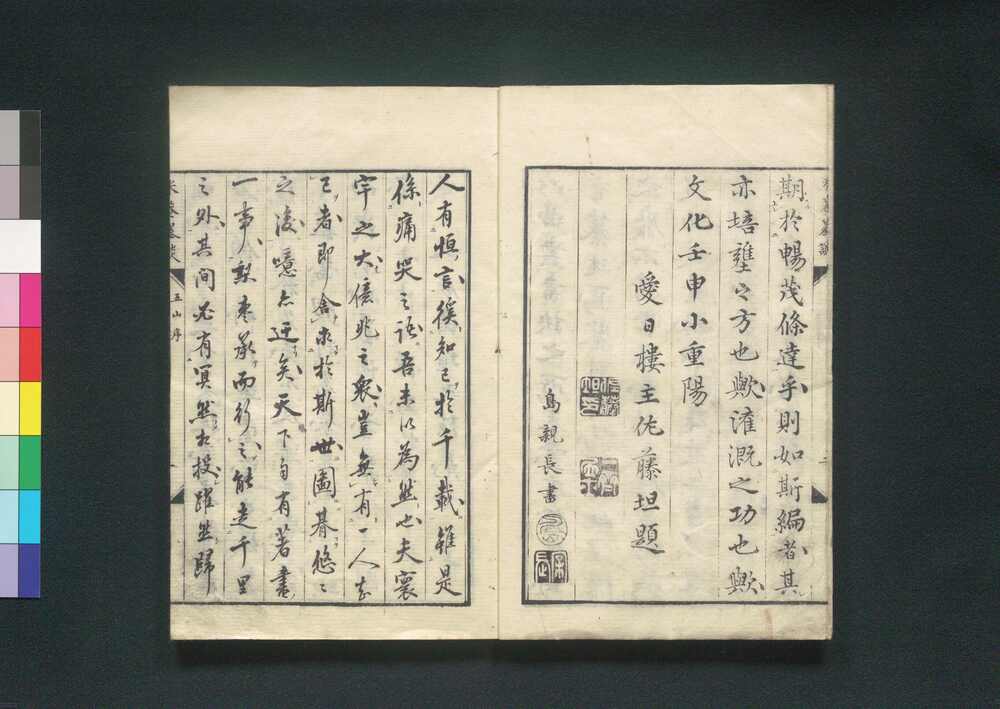 期於暢茂條達乎則如斯編者其
亦培壅之方也歟灌溉之功也歟
文化壬申小重陽
愛日樓主佐藤坦題
島親長書
人有恒言俟知己於千載雖是
係痛哭之語吾未以為然也夫寰
宇之大億兆之衆豈無有一人知
己者即舍求於斯世圖暮悠之
之後噫亦迂矣天下自有著書
一事梨棗承而行之能走千里
之外其間必有冥然相投躍然歸
五山序